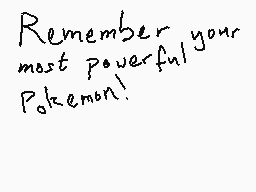 Remember your
most powerful
Pokemon!